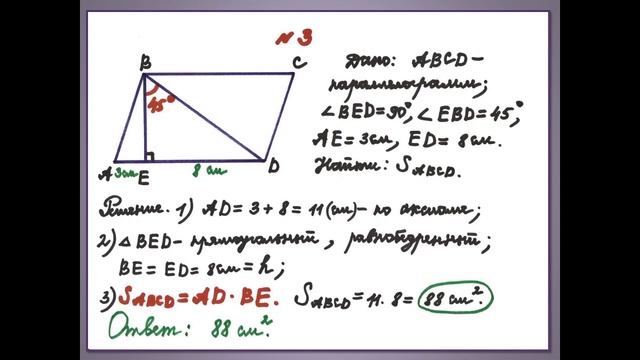 № 3
Дано: ABCD –
параллелограмм;
∠BED = 90°, ∠EBD = 45°,
AE = 3 см, ED = 8 см.
Найти: S ABCD.
B
C
45°
A
3 см
E
8 см
D
Решение. 1) AD = 3 + 8 = 11 (см) – по аксиоме;
2) △ BED – прямоугольный, равнобедренный;
BE = ED = 8 см = h;
3) S ABCD = AD · BE. S ABCD = 11 · 8 = 88 см².
Ответ: 88 см².